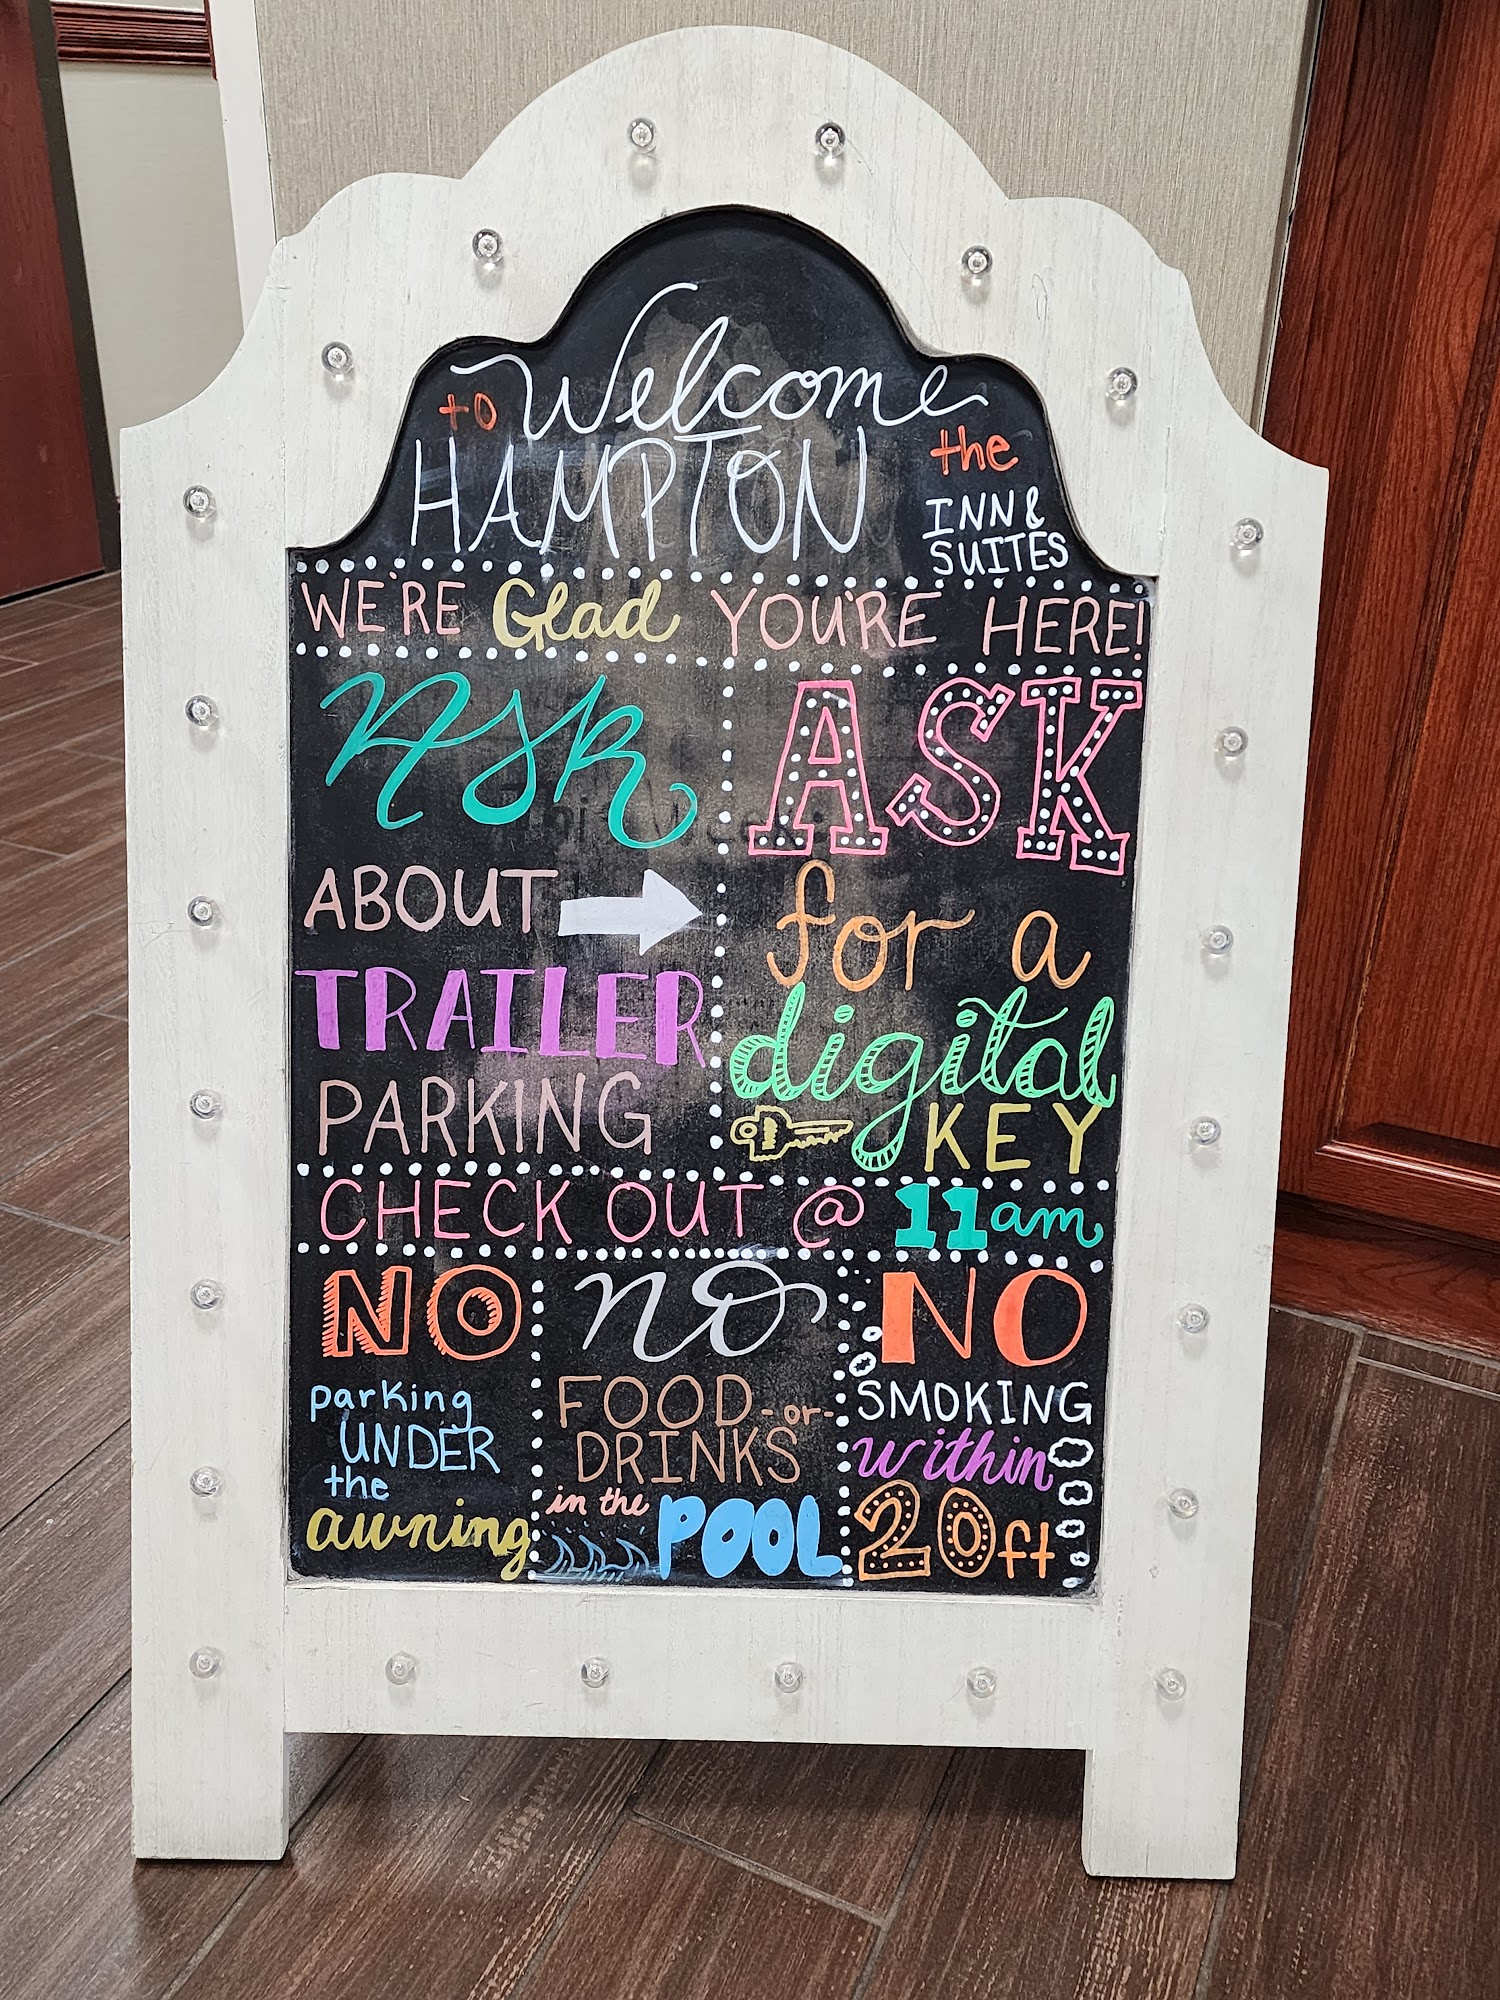 Welcome
to the
HAMPTON INN &
SUITES
WE'RE Glad YOU'RE HERE!
Ask
ABOUT
TRAILER
PARKING
ASK
for a
digital
KEY
CHECK OUT @ 11am
NO
parking
UNDER
the
awning
no
FOOD -or-
DRINKS
in the POOL
NO
SMOKING
within
20ft